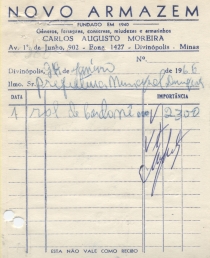 NOVO ARMAZEM
FUNDADO EM 1940
Gêneros, ferragens, conservas, miudezas e armarinhos
CARLOS AUGUSTO MOREIRA
Av. 1º de Junho, 902 - Fone 1427 - Divinópolis - Minas
Nº
Divinópolis, de de 196
Ilmo. Sr. Prefeitura Municipal
DATA IMPORTÂNCIA
1 de 2300
ESTA NÃO VALE COMO RECIBO